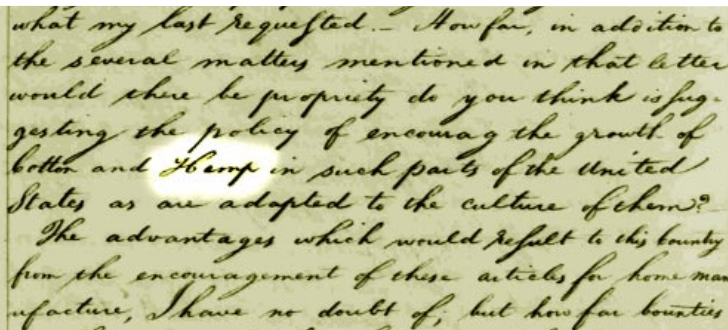 what my last requested. - How far, in addition to
the several matters mentioned in that letter
would there be propriety do you think in sug-
gesting the policy of encourag the growth of
Cotton and Hemp in such parts of the United
States as are adapted to the culture of them?
The advantages which would result to this Country
from the encouragement of these articles for home man
ufacture, I have no doubt of; but how far bounties